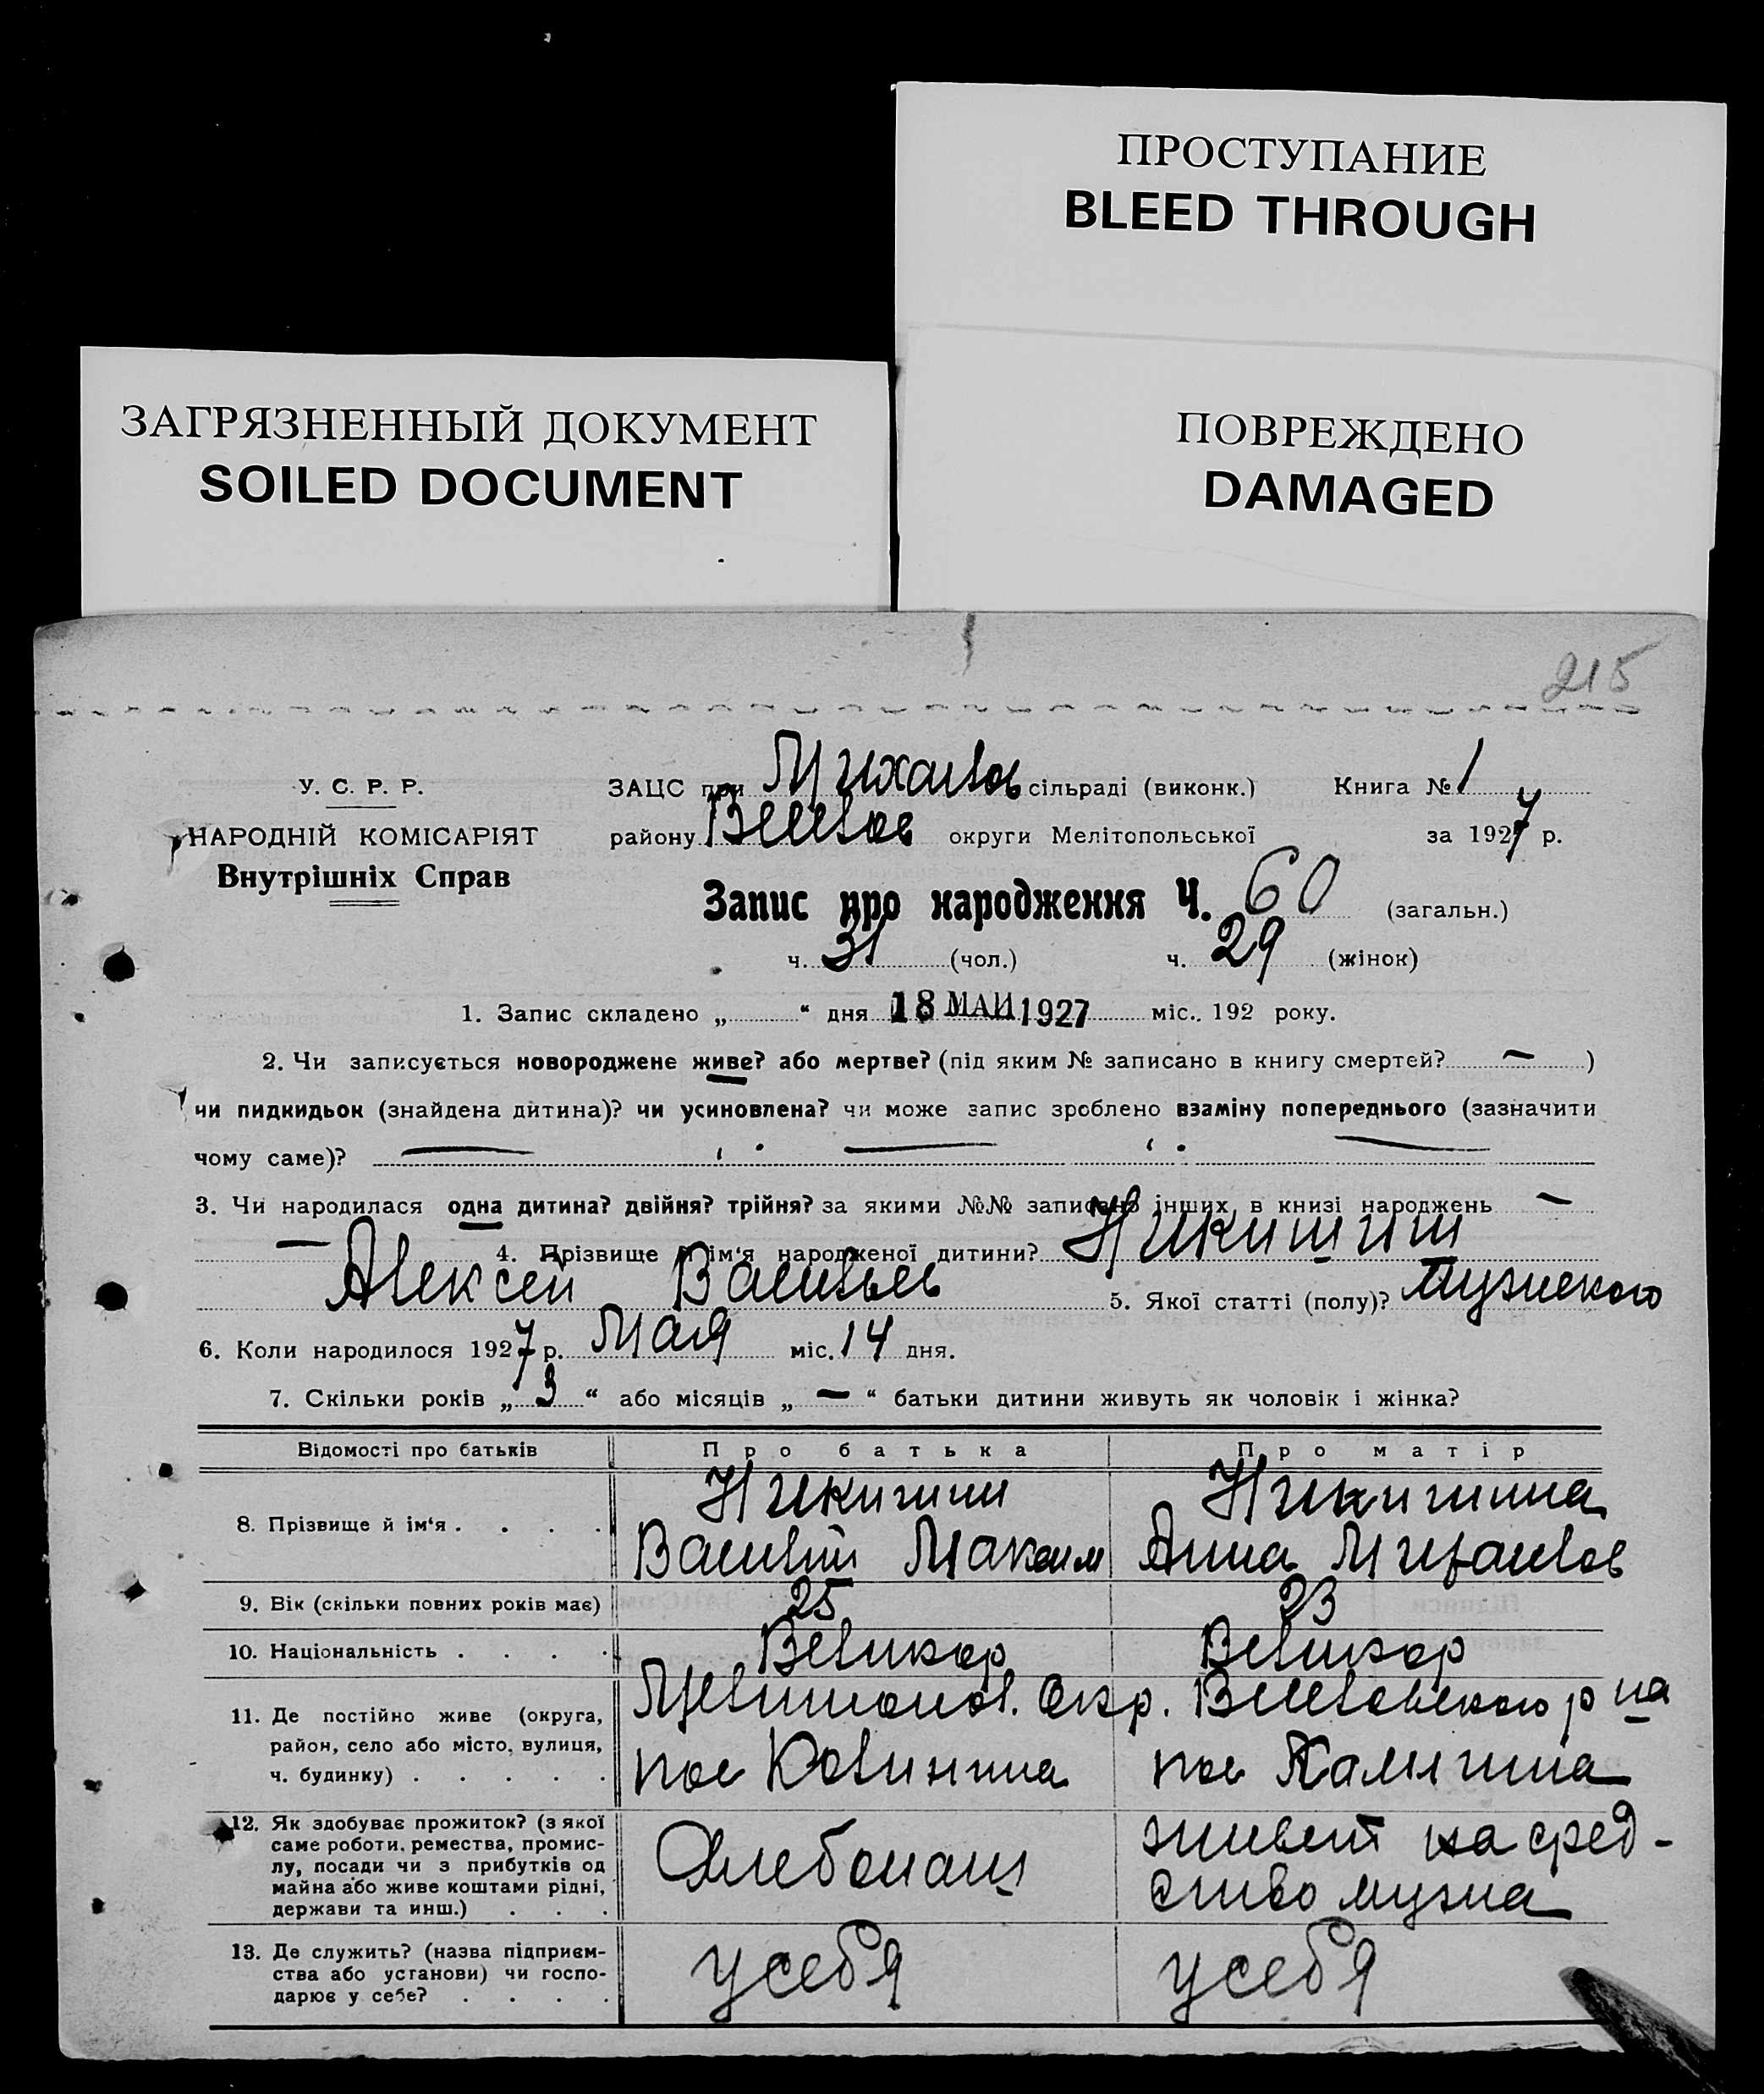 ПРОСТУПАНИЕ
BLEED THROUGH
ЗАГРЯЗНЕННЫЙ ДОКУМЕНТ
SOILED DOCUMENT
ПОВРЕЖДЕНО
DAMAGED
215
У. С. Р. Р.
НАРОДНІЙ КОМІСАРІЯТ
Внутрішніх Справ
ЗАЦС при Михайлов сільраді (виконк.) Книга № 1
району Веселов округи Мелітопольської за 1927 р.
Запис про народження Ч. 60 (загальн.)
ч. 31 (чол.) ч. 29 (жінок)
1. Запис складено „ “ дня 18 МАИ 1927 міс. 192 року.
2. Чи записується новороджене живе? або мертве? (під яким № записано в книгу смертей? — )
чи пидкидьок (знайдена дитина)? чи усиновлена? чи може запис зроблено взаміну попереднього (зазначити
чому саме)? — — —
3. Чи народилася одна дитина? двійня? трійня? за якими №№ записано інших в книзі народжень —
— 4. Прізвище й ім‘я народженої дитини? Никишин
Алексей Васильев 5. Якої статті (полу)? мужского
6. Коли народилося 1927 р. Мая міс. 14 дня.
7. Скільки років „ 3 “ або місяців „ — “ батьки дитини живуть як чоловік і жінка?
Відомості про батьків Про батька Про матір
8. Прізвище й ім‘я . . . . Никишин Никишина
Василий Максим Анна Михайлов
9. Вік (скільки повних років має) 25 23
10. Національність . . . . Великор Великор
11. Де постійно живе (округа,
район, село або місто, вулиця,
ч. будинку) . . . . .
Мелитопол. Окр. Веселовского р на
пос Калинина пос Калинина
12. Як здобуває прожиток? (з якої
саме роботи, ремества, промис-
лу, посади чи з прибутків од
майна або живе коштами рідні,
держави та инш.) . . .
Хлебопаш
живет на сред-
ство мужа
13. Де служить? (назва підприєм-
ства або установи) чи госпо-
дарює у себе? . . . .
у себя у себя